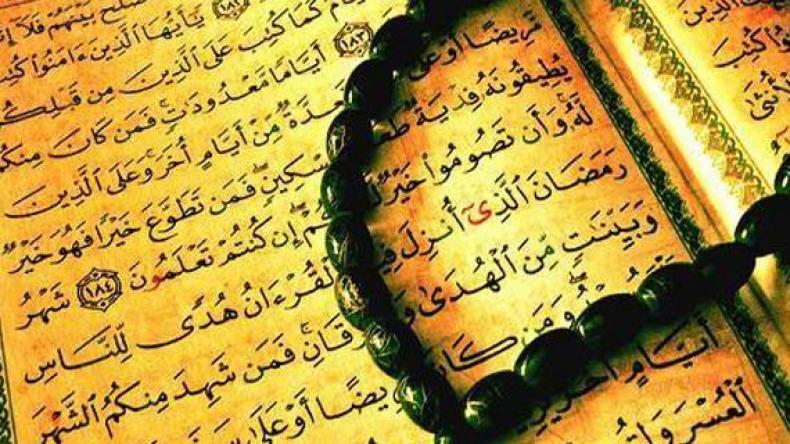 بَيْنَهُمْ فَلَآ
١٨٢ يَٰٓأَيُّهَا ٱلَّذِينَ ءَامَنُوا۟ كُتِبَ
كَمَا كُتِبَ عَلَى ٱلَّذِينَ مِن قَبْلِكُمْ
١٨٣ أَيَّامًا مَّعْدُودَٰتٍ ۚ فَمَن كَانَ مِنكُم
مَّرِيضًا أَوْ عَلَىٰ فَعِدَّةٌ مِّنْ أَيَّامٍ أُخَرَ ۚ وَعَلَى ٱلَّذِينَ
يُطِيقُونَهُۥ فِدْيَةٌ مِسْكِينٍ ۖ فَمَن تَطَوَّعَ خَيْرًا فَهُوَ خَيْرٌ
لَّهُۥ ۚ وَأَن تَصُومُوا۟ خَيْرٌ لَّكُمْ ۖ إِن كُنتُمْ تَعْلَمُونَ ١٨٤ شَهْرُ
رَمَضَانَ ٱلَّذِىٓ أُنزِلَ فِيهِ ٱلْقُرْءَانُ هُدًى لِّلنَّاسِ
وَبَيِّنَٰتٍ مِّنَ ٱلْهُدَىٰ وَٱلْفُرْقَانِ ۚ فَمَن شَهِدَ مِنكُمُ ٱلشَّهْرَ
وَمَن كَانَ مَرِيضًا أَوْ عَلَىٰ
أَيَّامٍ أُخَرَ
ٱلْعُسْرَ
ٱلَّذِينَ
كُتِبَ